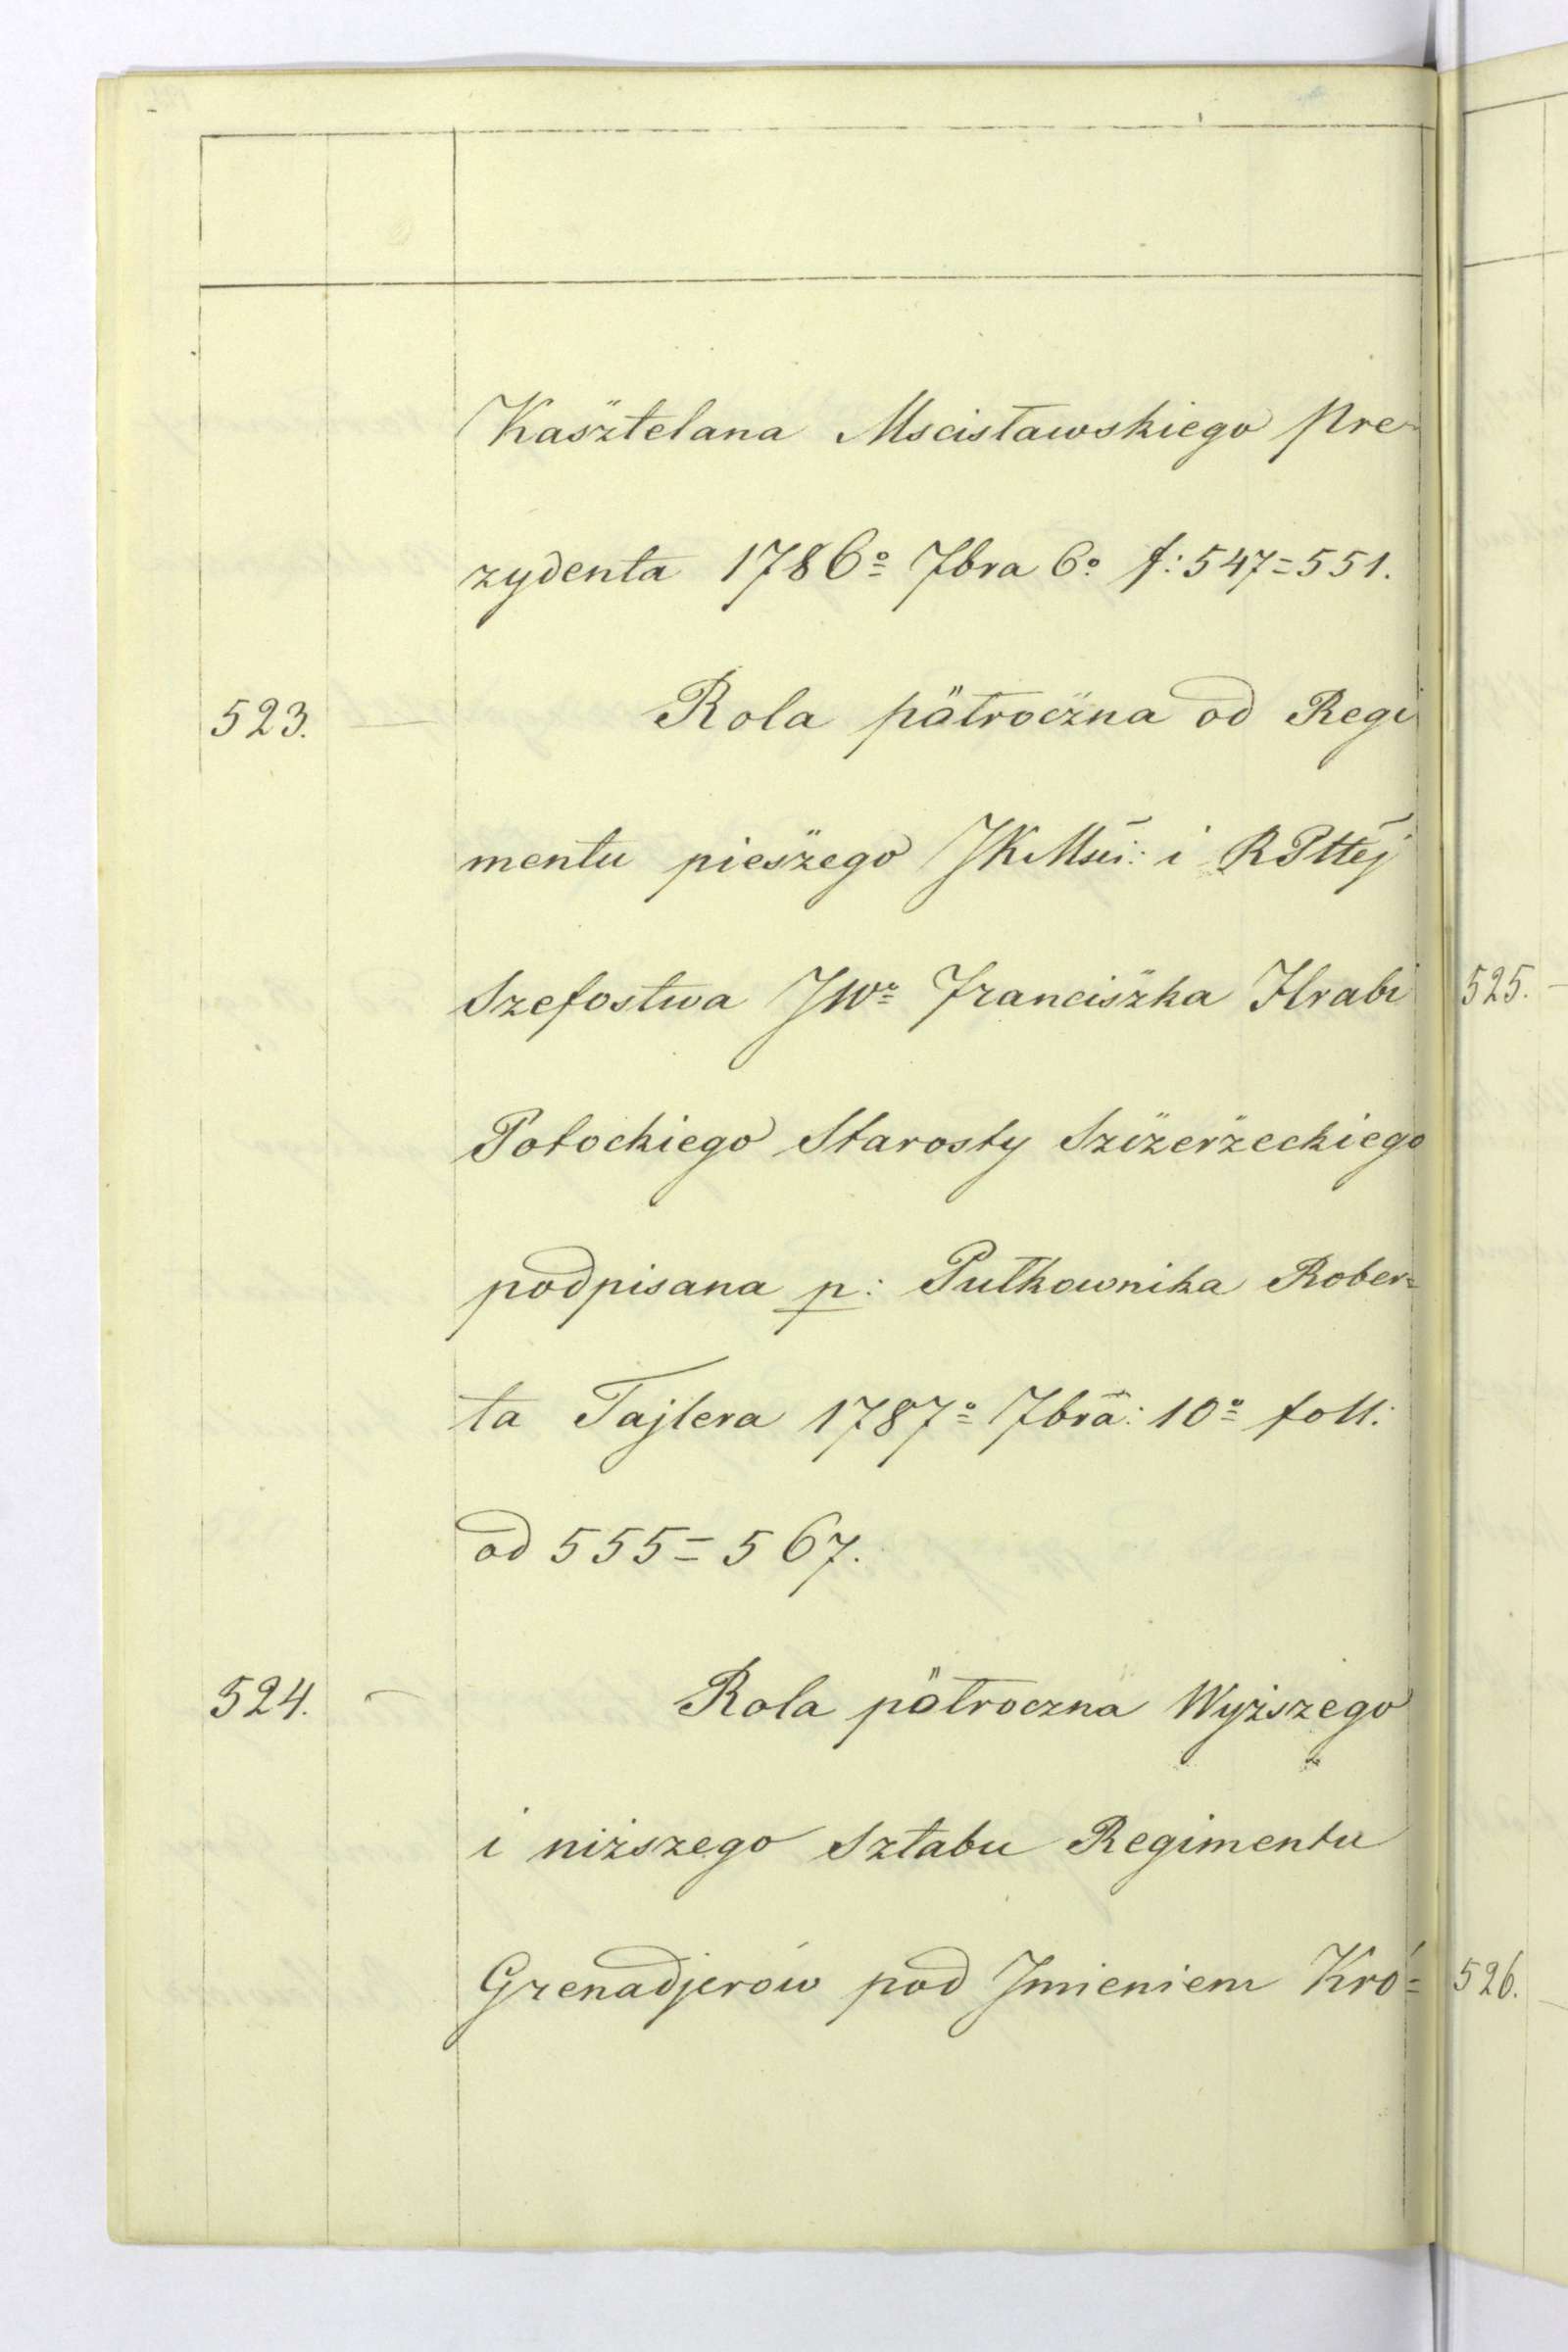 Kasztelana Mscisławskiego Pre-
zydenta 1786º 7bra 6º f: 547=551.
523. — Rola pätroczna od Regi
mentu pieszego JKMsci: i RPttej
Szefostwa JWº Franciszka Hrabi
Potockiego Starosty Szczerzeckiego
podpisana p: Pułkownika Rober=
ta Tajlera 1787º 7bra: 10º foll:
od 555=567.
524. — Rola pötroczna Wyższego
i niższego Sztabu Regimentu
Grenadjerów pod Jmieniem Kró=
525.
526.